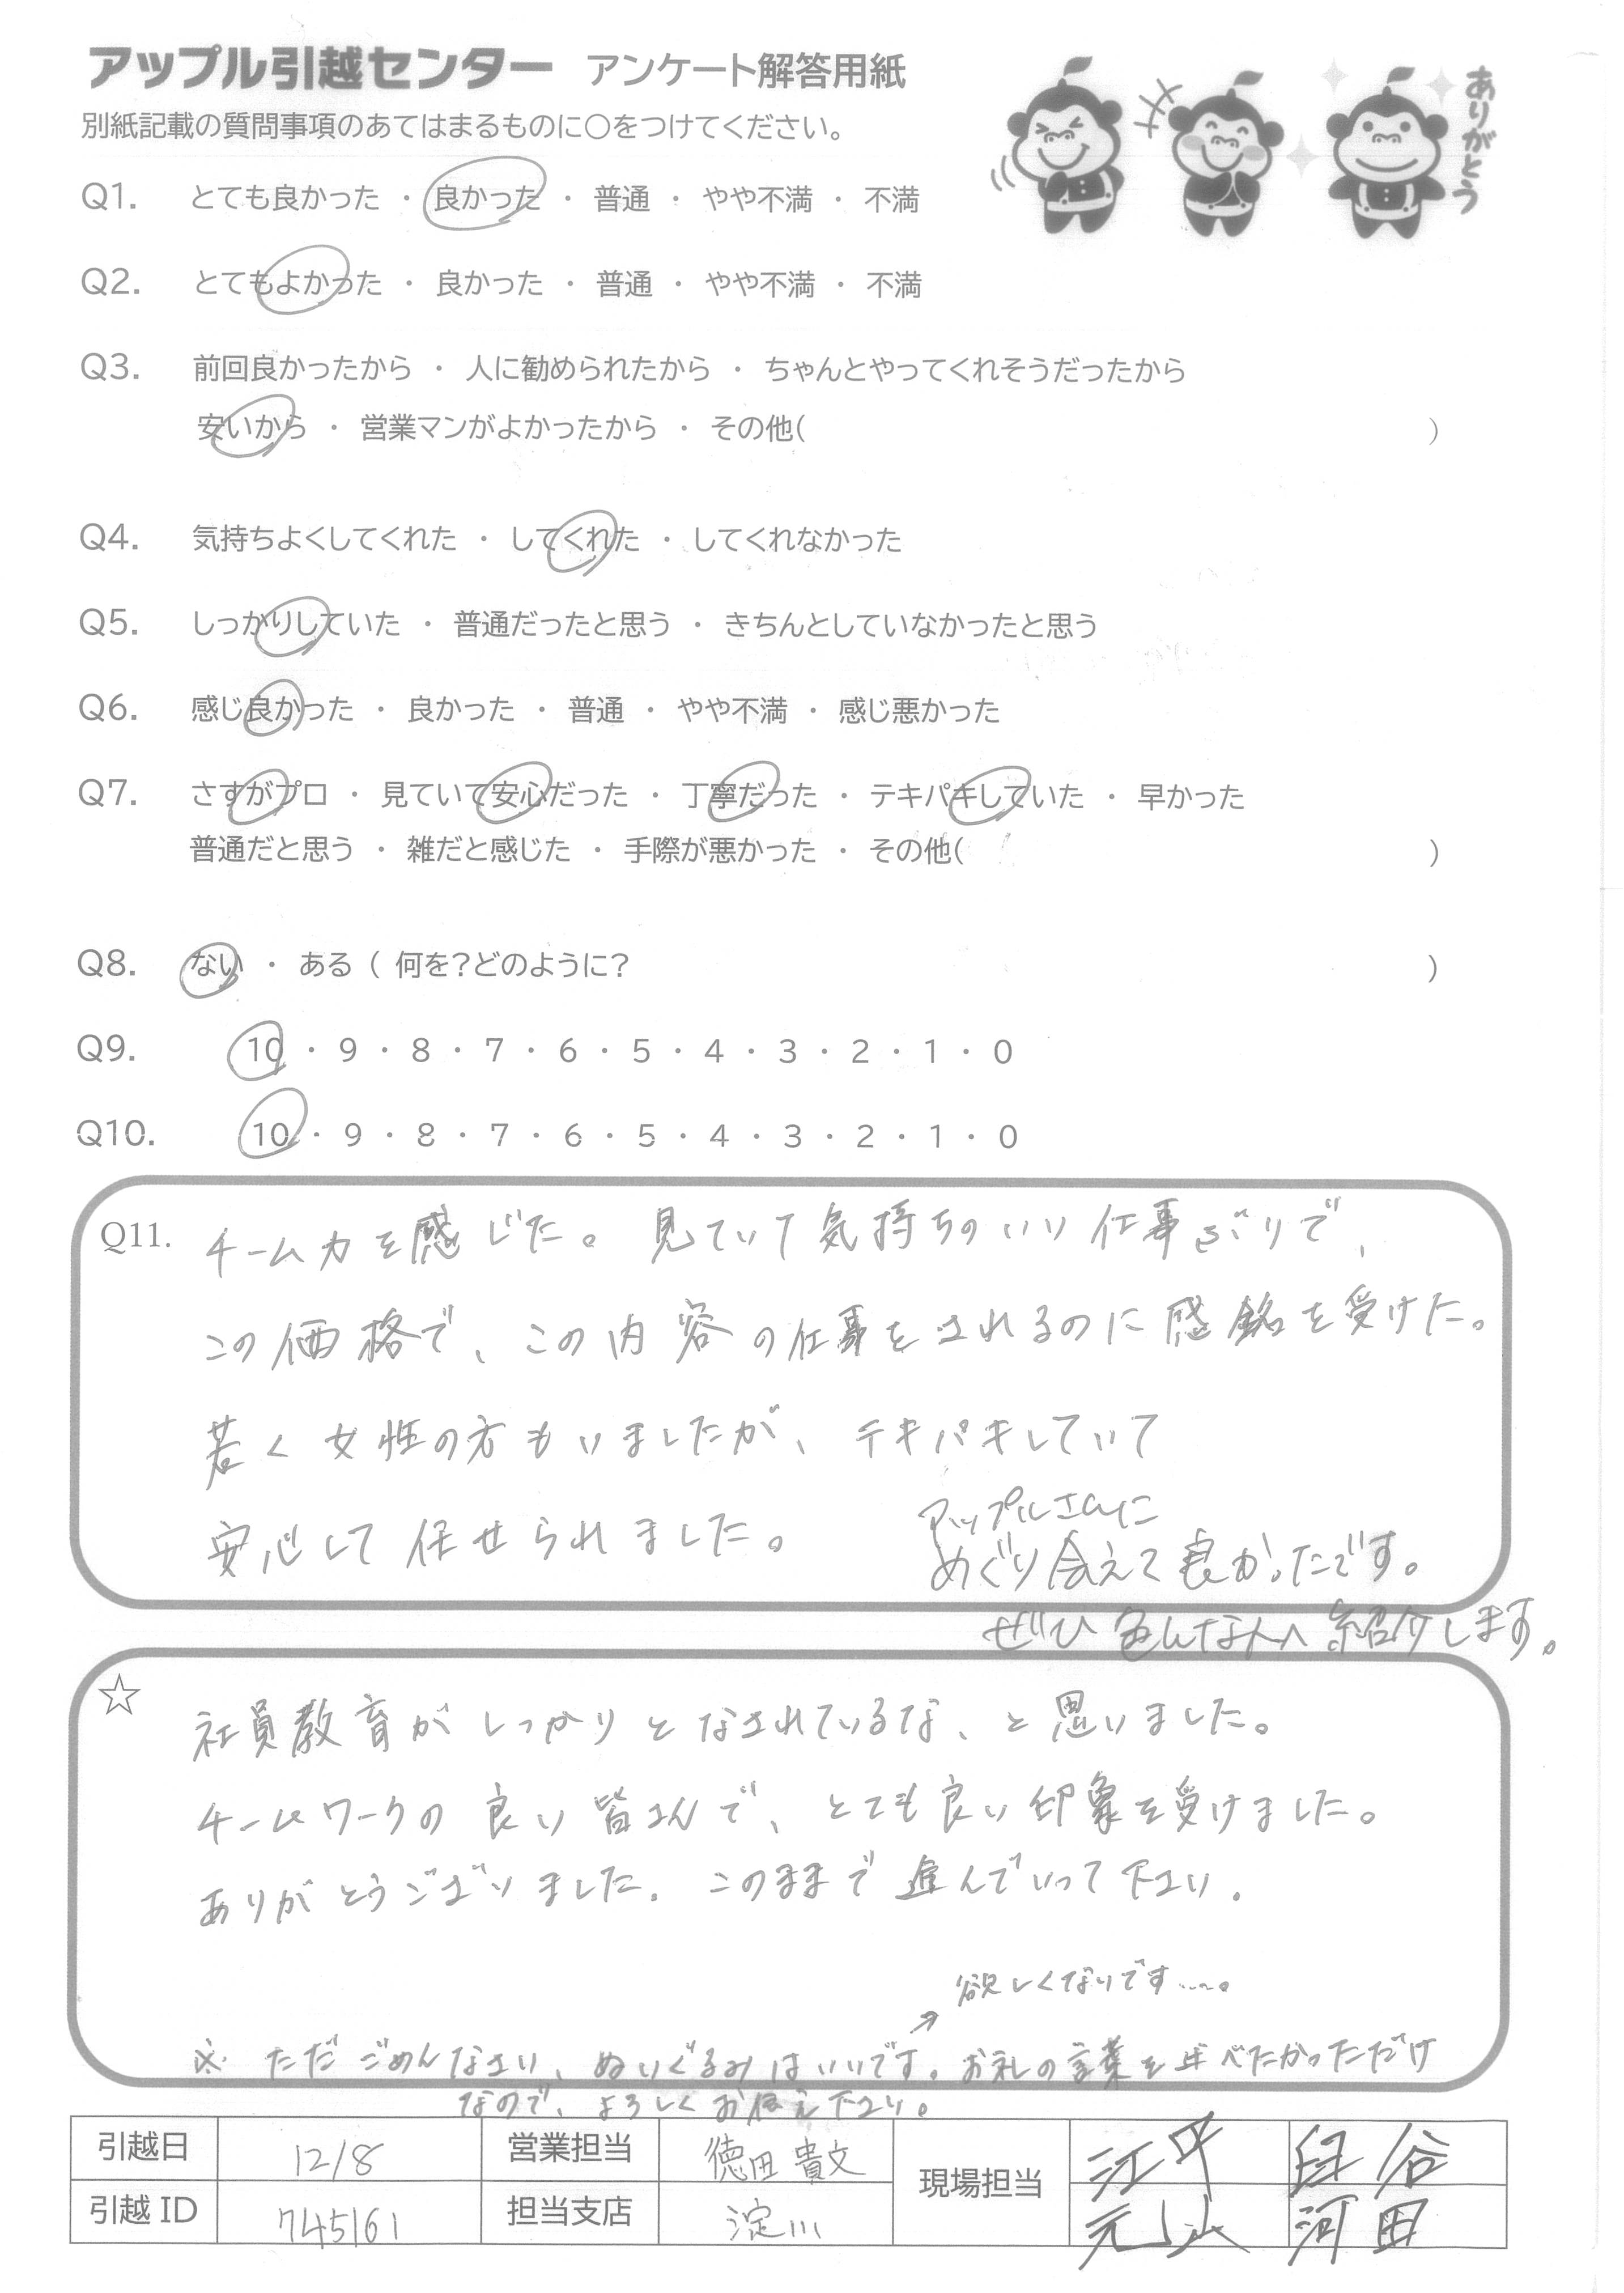 アップル引越センター アンケート解答用紙
ありがとう
別紙記載の質問事項のあてはまるものに○をつけてください。
Q1. とても良かった ・ 良かった ・ 普通 ・ やや不満 ・ 不満
Q2. とてもよかった ・ 良かった ・ 普通 ・ やや不満 ・ 不満
Q3. 前回良かったから ・ 人に勧められたから ・ ちゃんとやってくれそうだったから
安いから ・ 営業マンがよかったから ・ その他( )
Q4. 気持ちよくしてくれた ・ してくれた ・ してくれなかった
Q5. しっかりしていた ・ 普通だったと思う ・ きちんとしていなかったと思う
Q6. 感じ良かった ・ 良かった ・ 普通 ・ やや不満 ・ 感じ悪かった
Q7. さすがプロ ・ 見ていて安心だった ・ 丁寧だった ・ テキパキしていた ・ 早かった
普通だと思う ・ 雑だと感じた ・ 手際が悪かった ・ その他( )
Q8. ない ・ ある ( 何を?どのように? )
Q9. 10 ・ 9 ・ 8 ・ 7 ・ 6 ・ 5 ・ 4 ・ 3 ・ 2 ・ 1 ・ 0
Q10. 10 ・ 9 ・ 8 ・ 7 ・ 6 ・ 5 ・ 4 ・ 3 ・ 2 ・ 1 ・ 0
Q11. チーム力を感じた。見ていて気持ちのいい仕事ぶりで、
この価格で、この内容の仕事をされるのに感銘を受けた。
若く女性の方もいましたが、テキパキしていて
安心して任せられました。
アップルさんに
めぐり会えて良かったです。
ぜひ色んな人へ紹介します。
☆ 社員教育がしっかりとなされているな、と思いました。
チームワークの良い皆さんで、とても良い印象を受けました。
ありがとうございました。このままで進んでいって下さい。
→ 欲しくないです…。
※ ただごめんなさい、ぬいぐるみはいいです。お礼の言葉を述べたかっただけ
なので、よろしくお伝え下さい。
引越日 12/8 営業担当 徳田 貴文 現場担当 江平 臼谷
引越ID 745161 担当支店 淀川 元山 河田